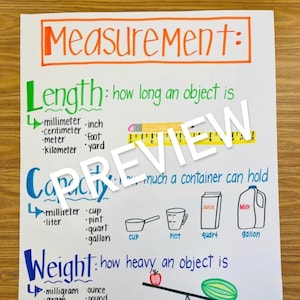 Measurement:
Length: how long an object is
millimeter ·inch
·centimeter ·foot
·meter ·yard
·kilometer
PREVIEW
Capacity: how much a container can hold
·milliliter ·cup
·liter ·pint
·quart
·gallon
cup pint quart gallon
JUICE
MILK
Weight: how heavy an object is
·milligram ounce